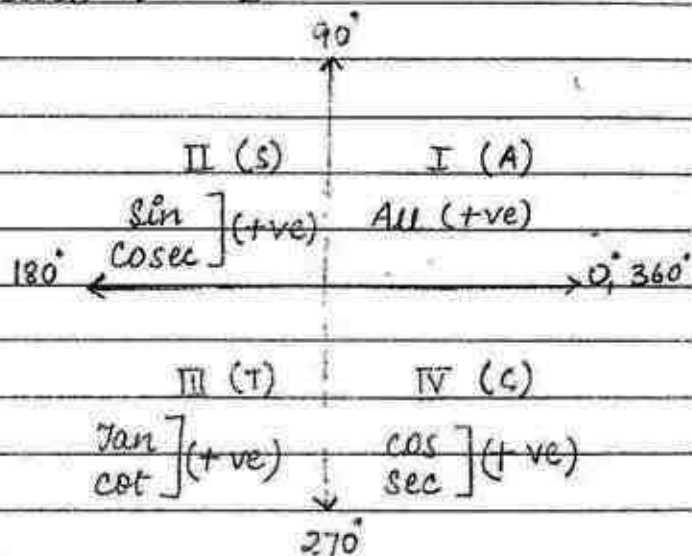 90°
II (S) I (A)
Sin
cosec ] (+ve) All (+ve)
180° 0°, 360°
III (T) IV (C)
Tan
cot ] (+ve) cos
sec ] (+ve)
270°